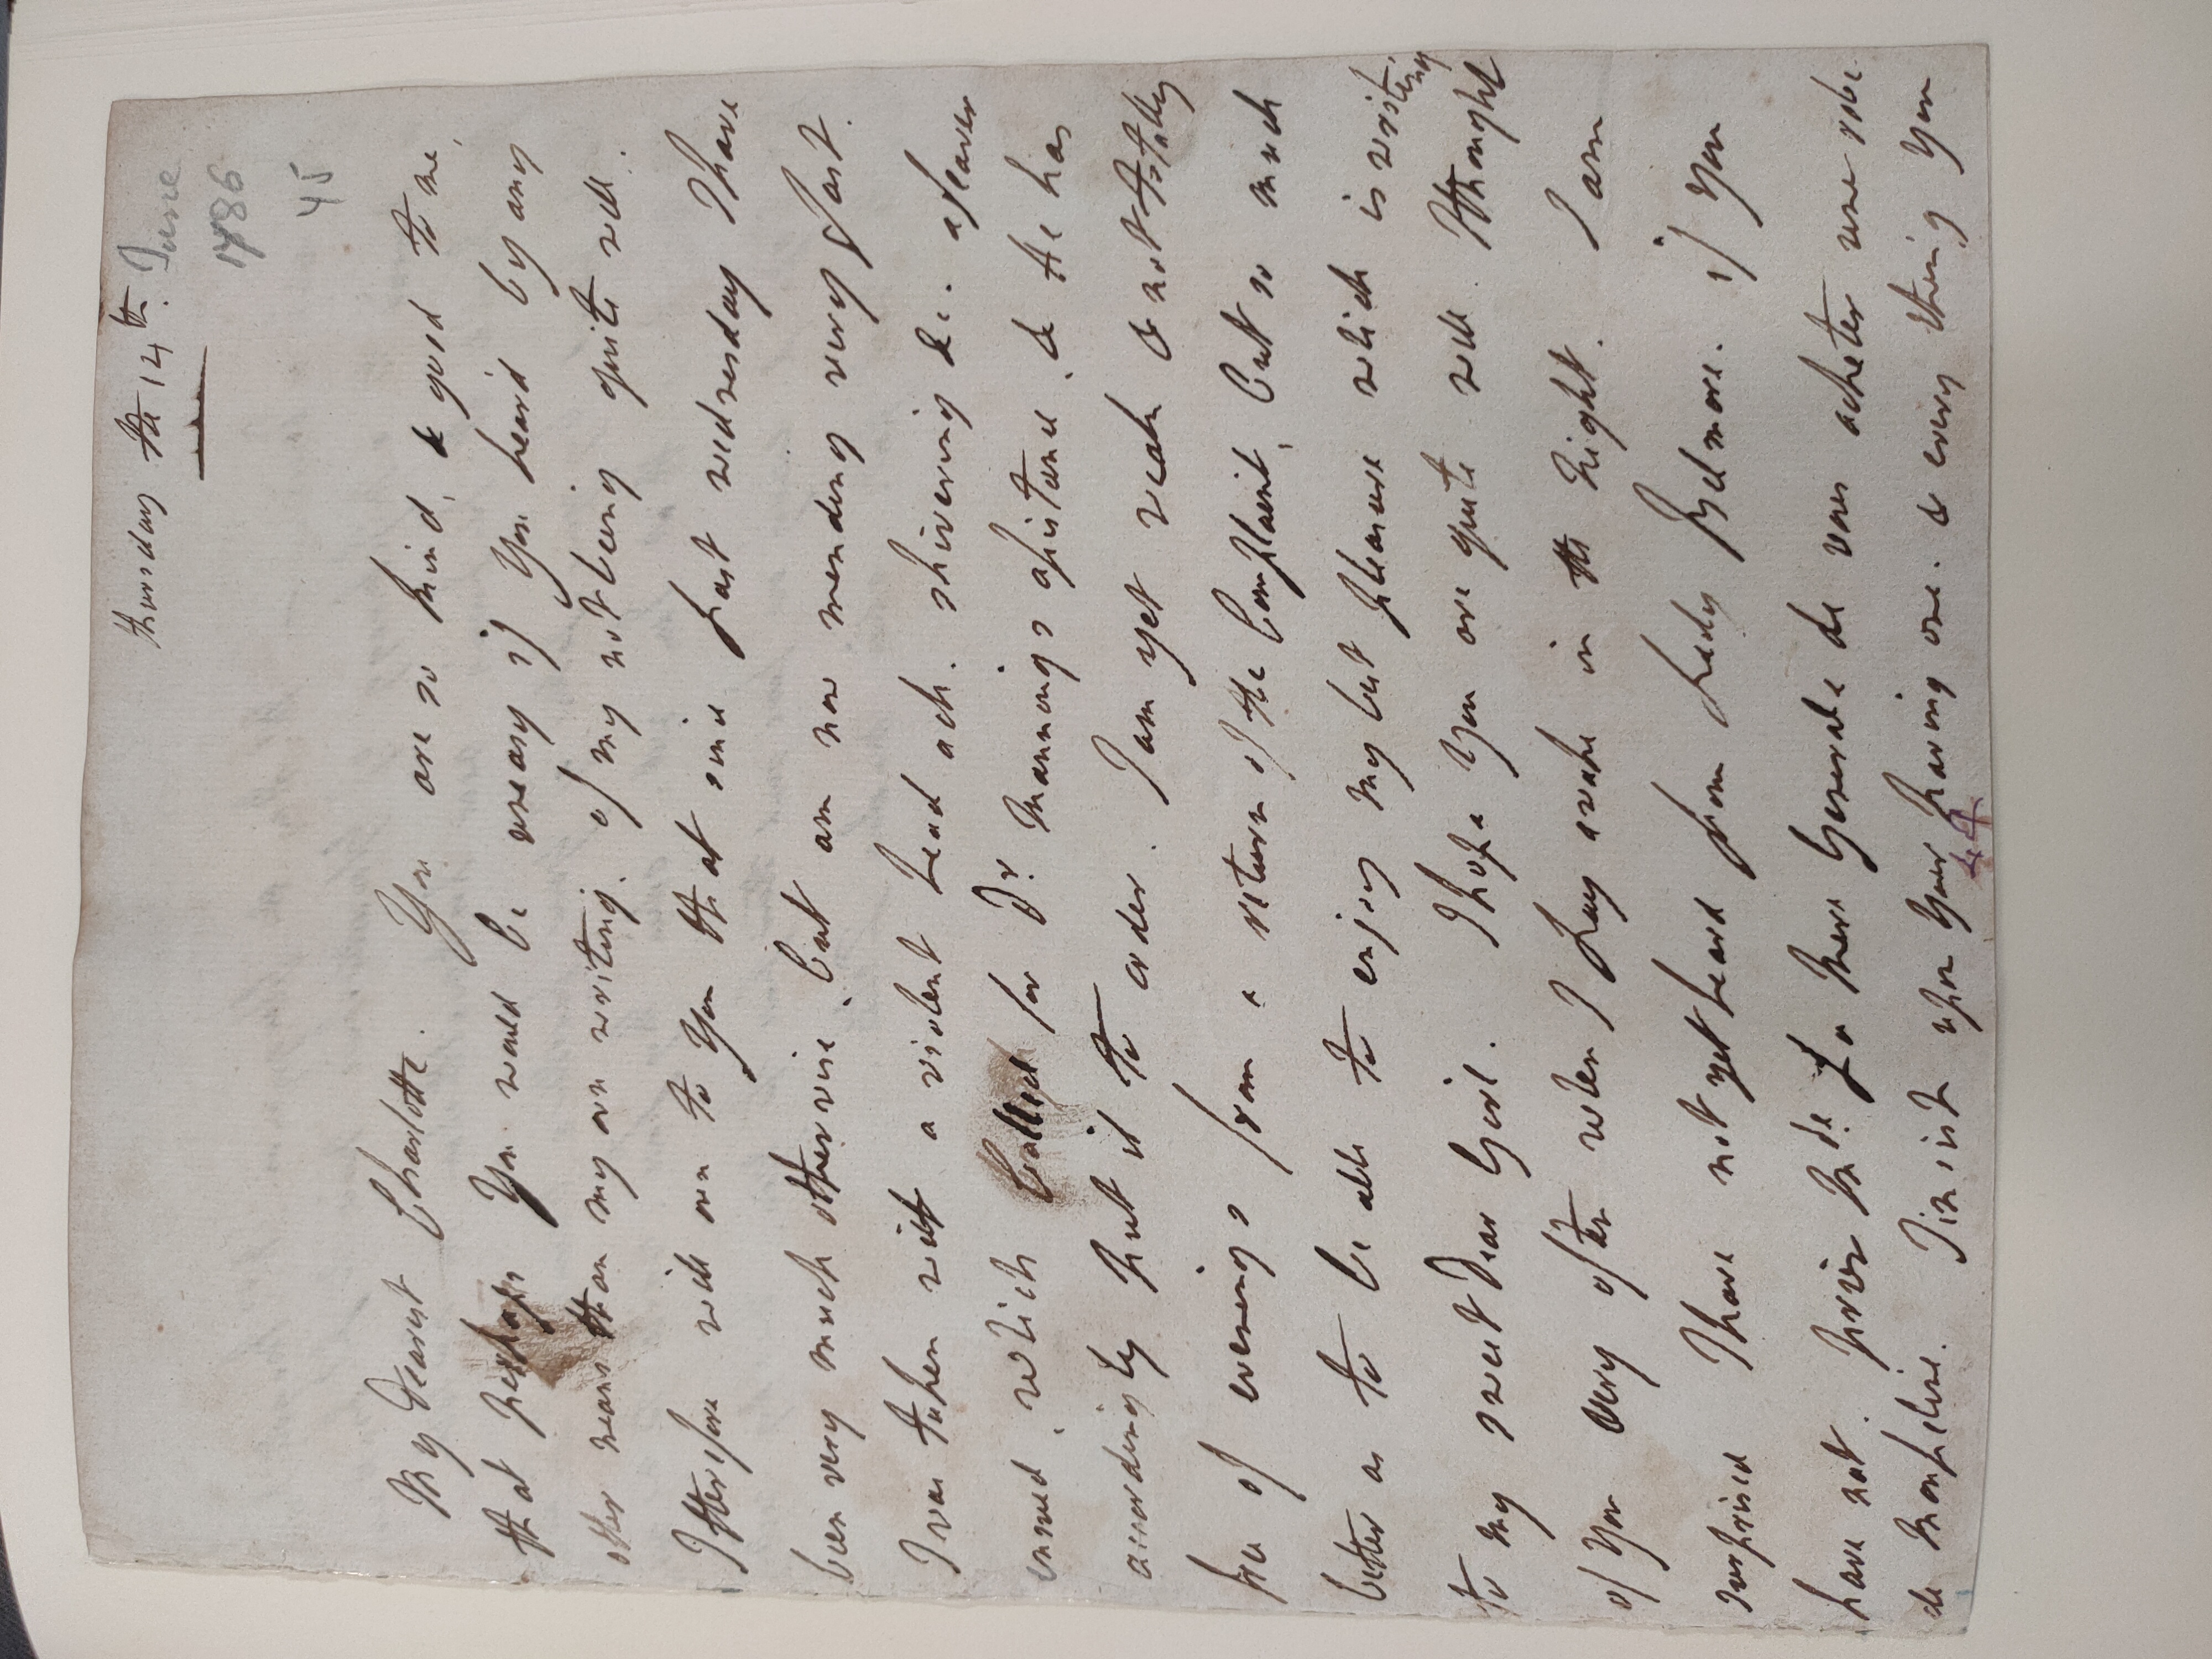 thursday the 14th. June
1786
45
My Dearest Charlotte. You are so kind, & good to me,
that perhaps You would be uneasy if You heard by any
other means than my own writing. of my not being quite well.
I therefore will own to You that since Last wednesday I have
been very much otherwise, but am now mending very fast.
I was taken with a violent Head ach. shivering &c. a feaver
ensued, which Called for Dr. Mannings assistance, & He has
accordingly Put it to order. I am yet weak & not totally
free of evenings from a return of the Complaint, but so much
better as to be able to enjoy my best Pleasure which is writing
to my sweet Dear Girl. I hope You are quite well. I thought
of You very often when I Lay awake in the Night. I am
surprised I have not yet heard from Lady Belmore. if You
have not. Priér Mde. La Mere Generale de vous acheter une robe
de mousseline. I insist upon Your having one. & every thing You